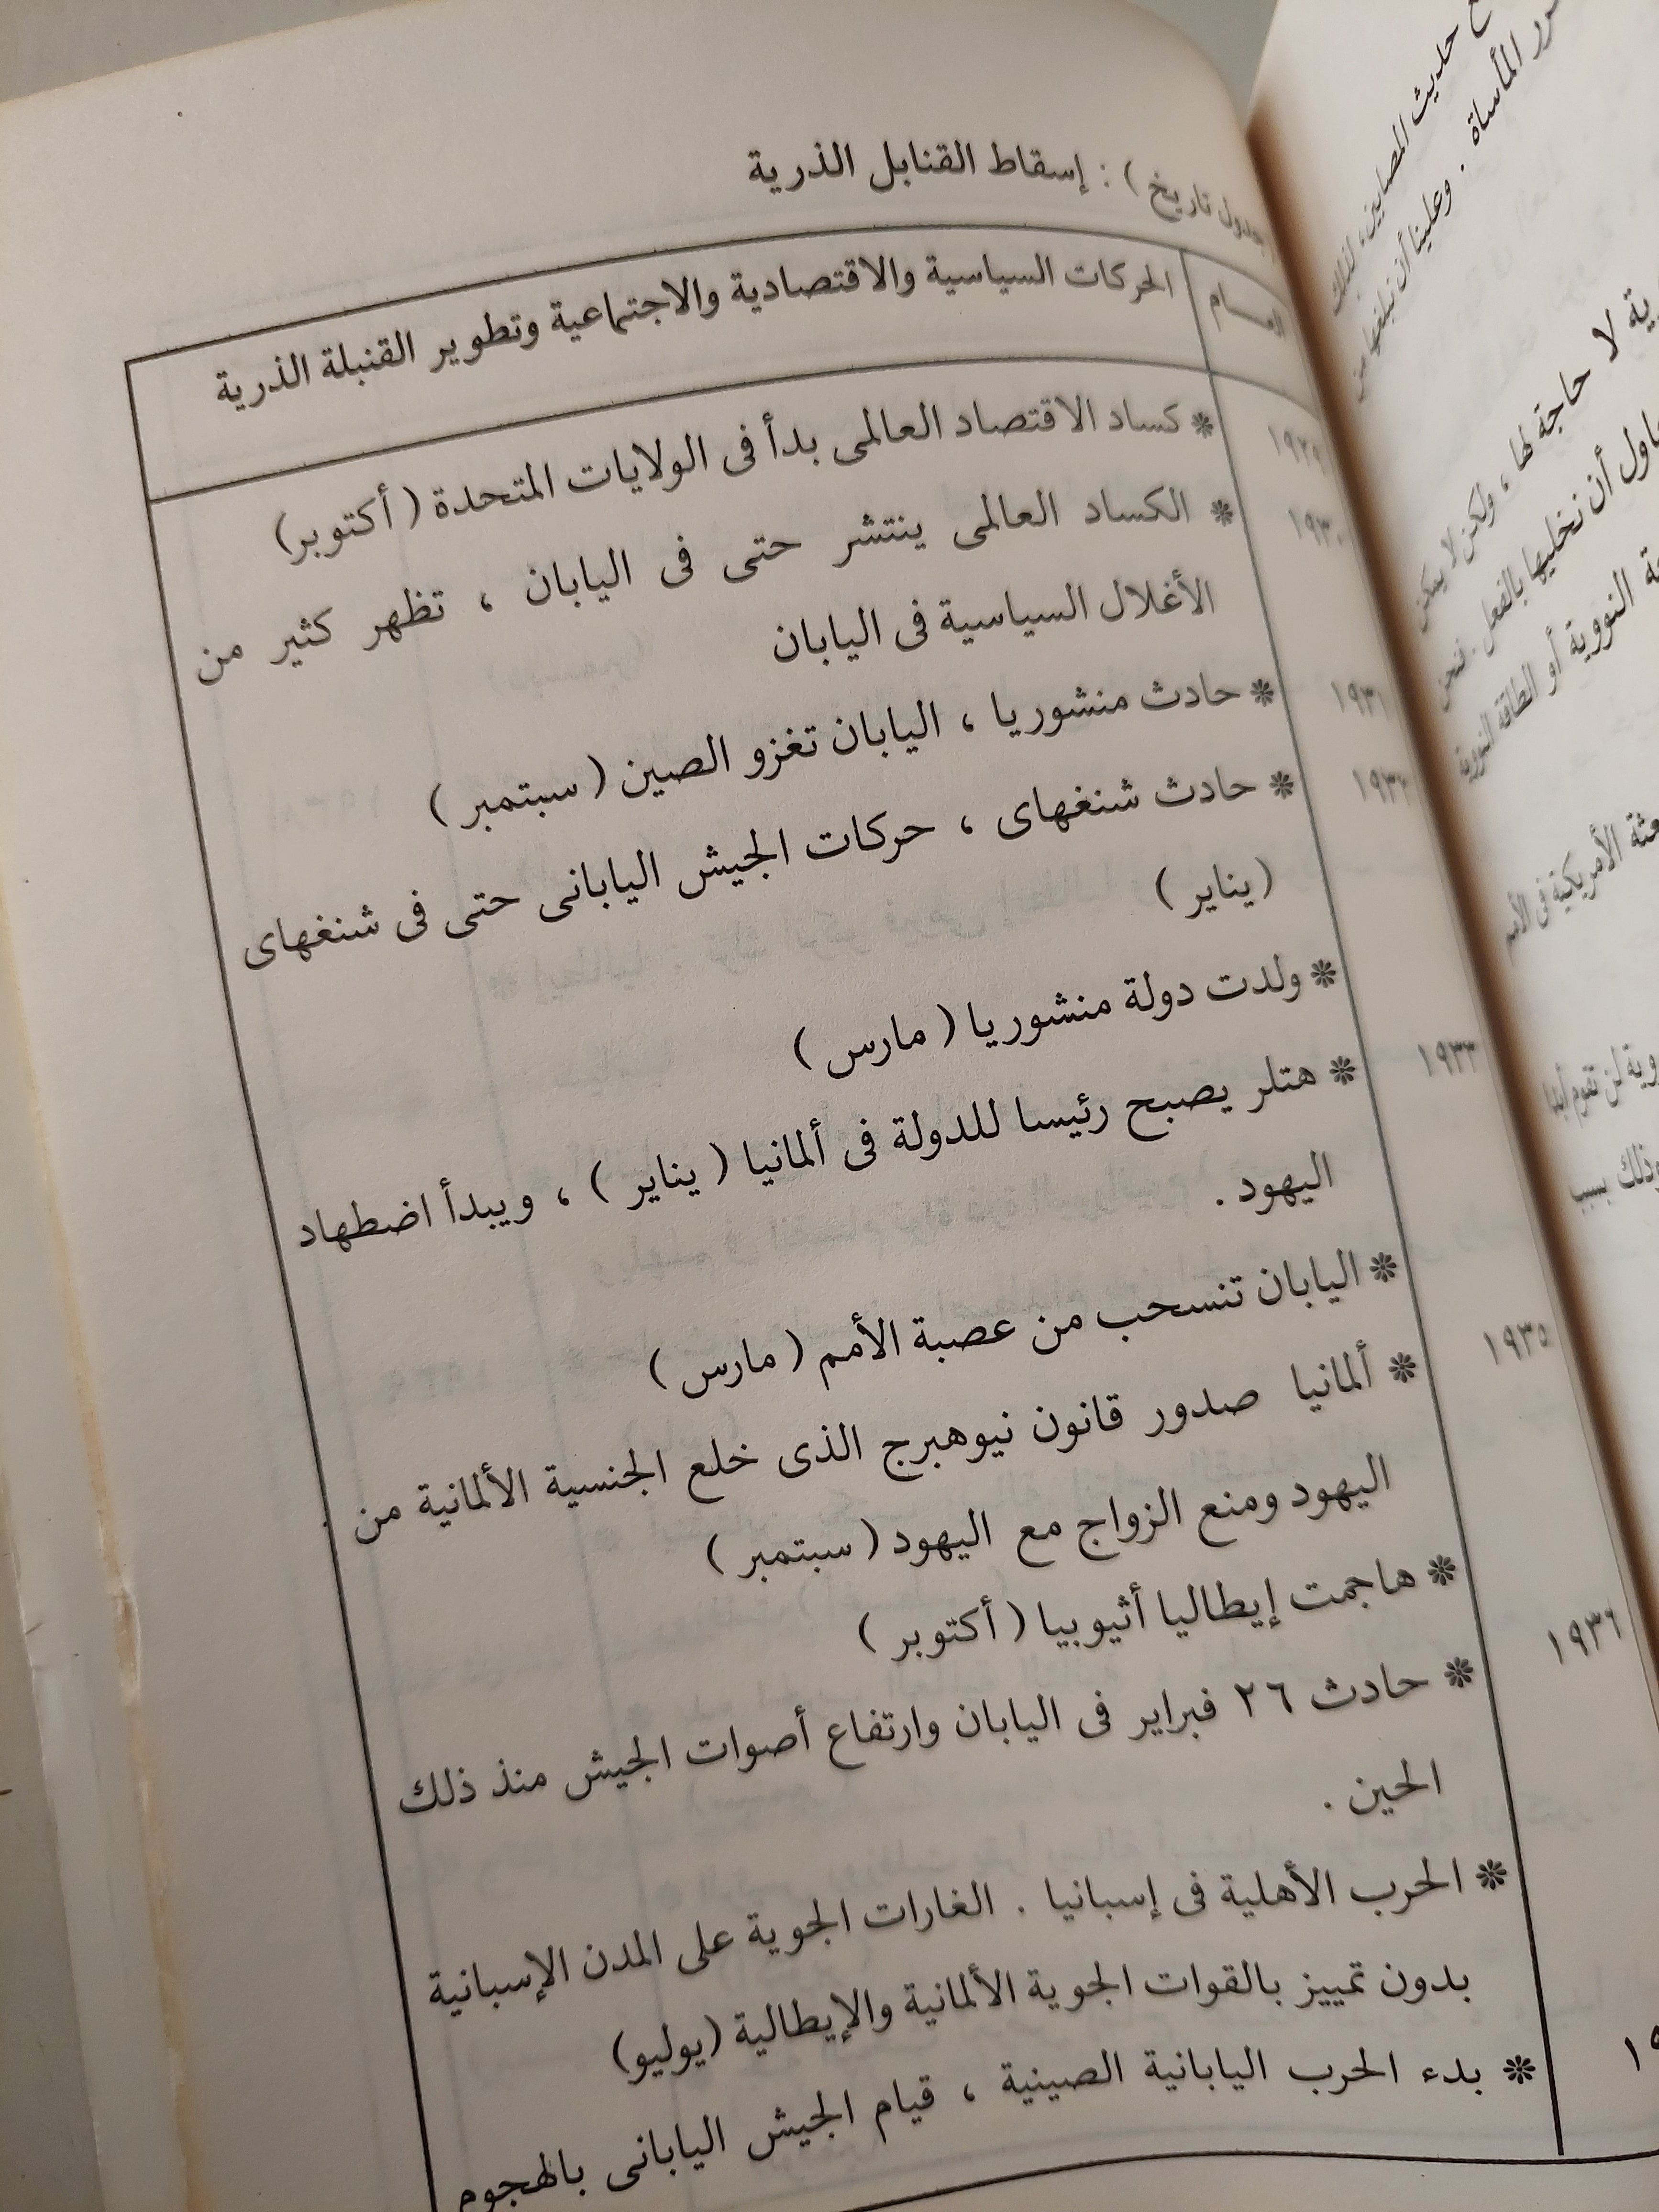 جدول تاريخ ) : إسقاط القنابل الذرية
العــــام
الحركات السياسية والاقتصادية والاجتماعية وتطوير القنبلة الذرية
١٩٢٩
* كساد الاقتصاد العالمى بدأ فى الولايات المتحدة ( أكتوبر)
١٩٣٠
* الكساد العالمى ينتشر حتى فى اليابان ، تظهر كثير من
الأغلال السياسية فى اليابان
١٩٣١
* حادث منشوريا ، اليابان تغزو الصين ( سبتمبر )
١٩٣٢
* حادث شنغهاى ، حركات الجيش اليابانى حتى فى شنغهاى
( يناير )
* ولدت دولة منشوريا ( مارس )
١٩٣٣
* هتلر يصبح رئيسا للدولة فى ألمانيا ( يناير ) ، ويبدأ اضطهاد
اليهود .
* اليابان تنسحب من عصبة الأمم ( مارس )
١٩٣٥
* ألمانيا صدور قانون نيوهبرج الذى خلع الجنسية الألمانية من
اليهود ومنع الزواج مع اليهود ( سبتمبر )
* هاجمت إيطاليا أثيوبيا ( أكتوبر )
١٩٣٦
* حادث ٢٦ فبراير فى اليابان وارتفاع أصوات الجيش منذ ذلك
الحين .
* الحرب الأهلية فى إسبانيا . الغارات الجوية على المدن الإسبانية
بدون تمييز بالقوات الجوية الألمانية والإيطالية (يوليو)
* بدء الحرب اليابانية الصينية ، قيام الجيش اليابانى بالهجوم
حديث المصابين، لذلك
المأساة . وعلينا أن نبلغها من
لا حاجة لها ، ولكن لا يمكن
أن نخليها بالفعل . فنحن
النووية أو الطاقة النووية
الأمريكية فى الأمم
لن تقوم أبدا
وذلك بسبب